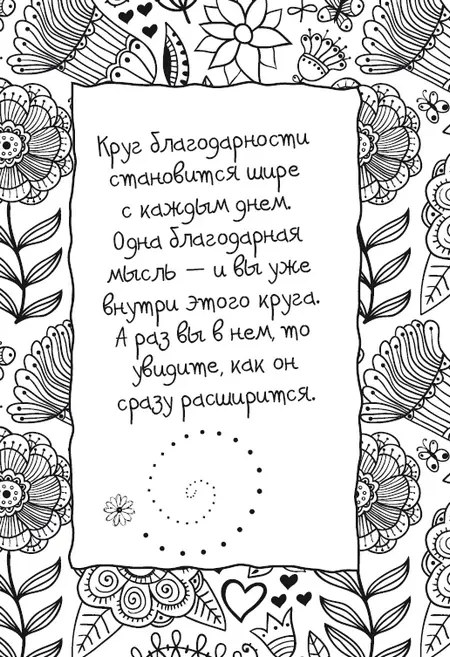 Круг благодарности
становится шире
с каждым днем.
Одна благодарная
мысль — и вы уже
внутри этого круга.
А раз вы в нем, то
увидите, как он
сразу расширится.